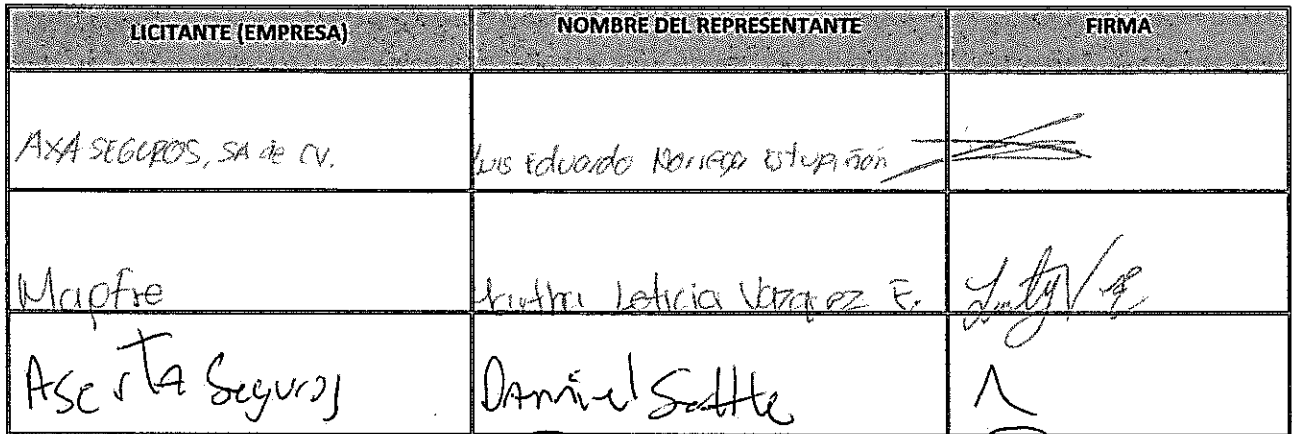 LICITANTE (EMPRESA) NOMBRE DEL REPRESENTANTE FIRMA
AXA SEGUROS, SA de CV. Luis Eduardo Noriega Estupiñán
Mapfre Leticia Vazquez E.
Aserta Seguros